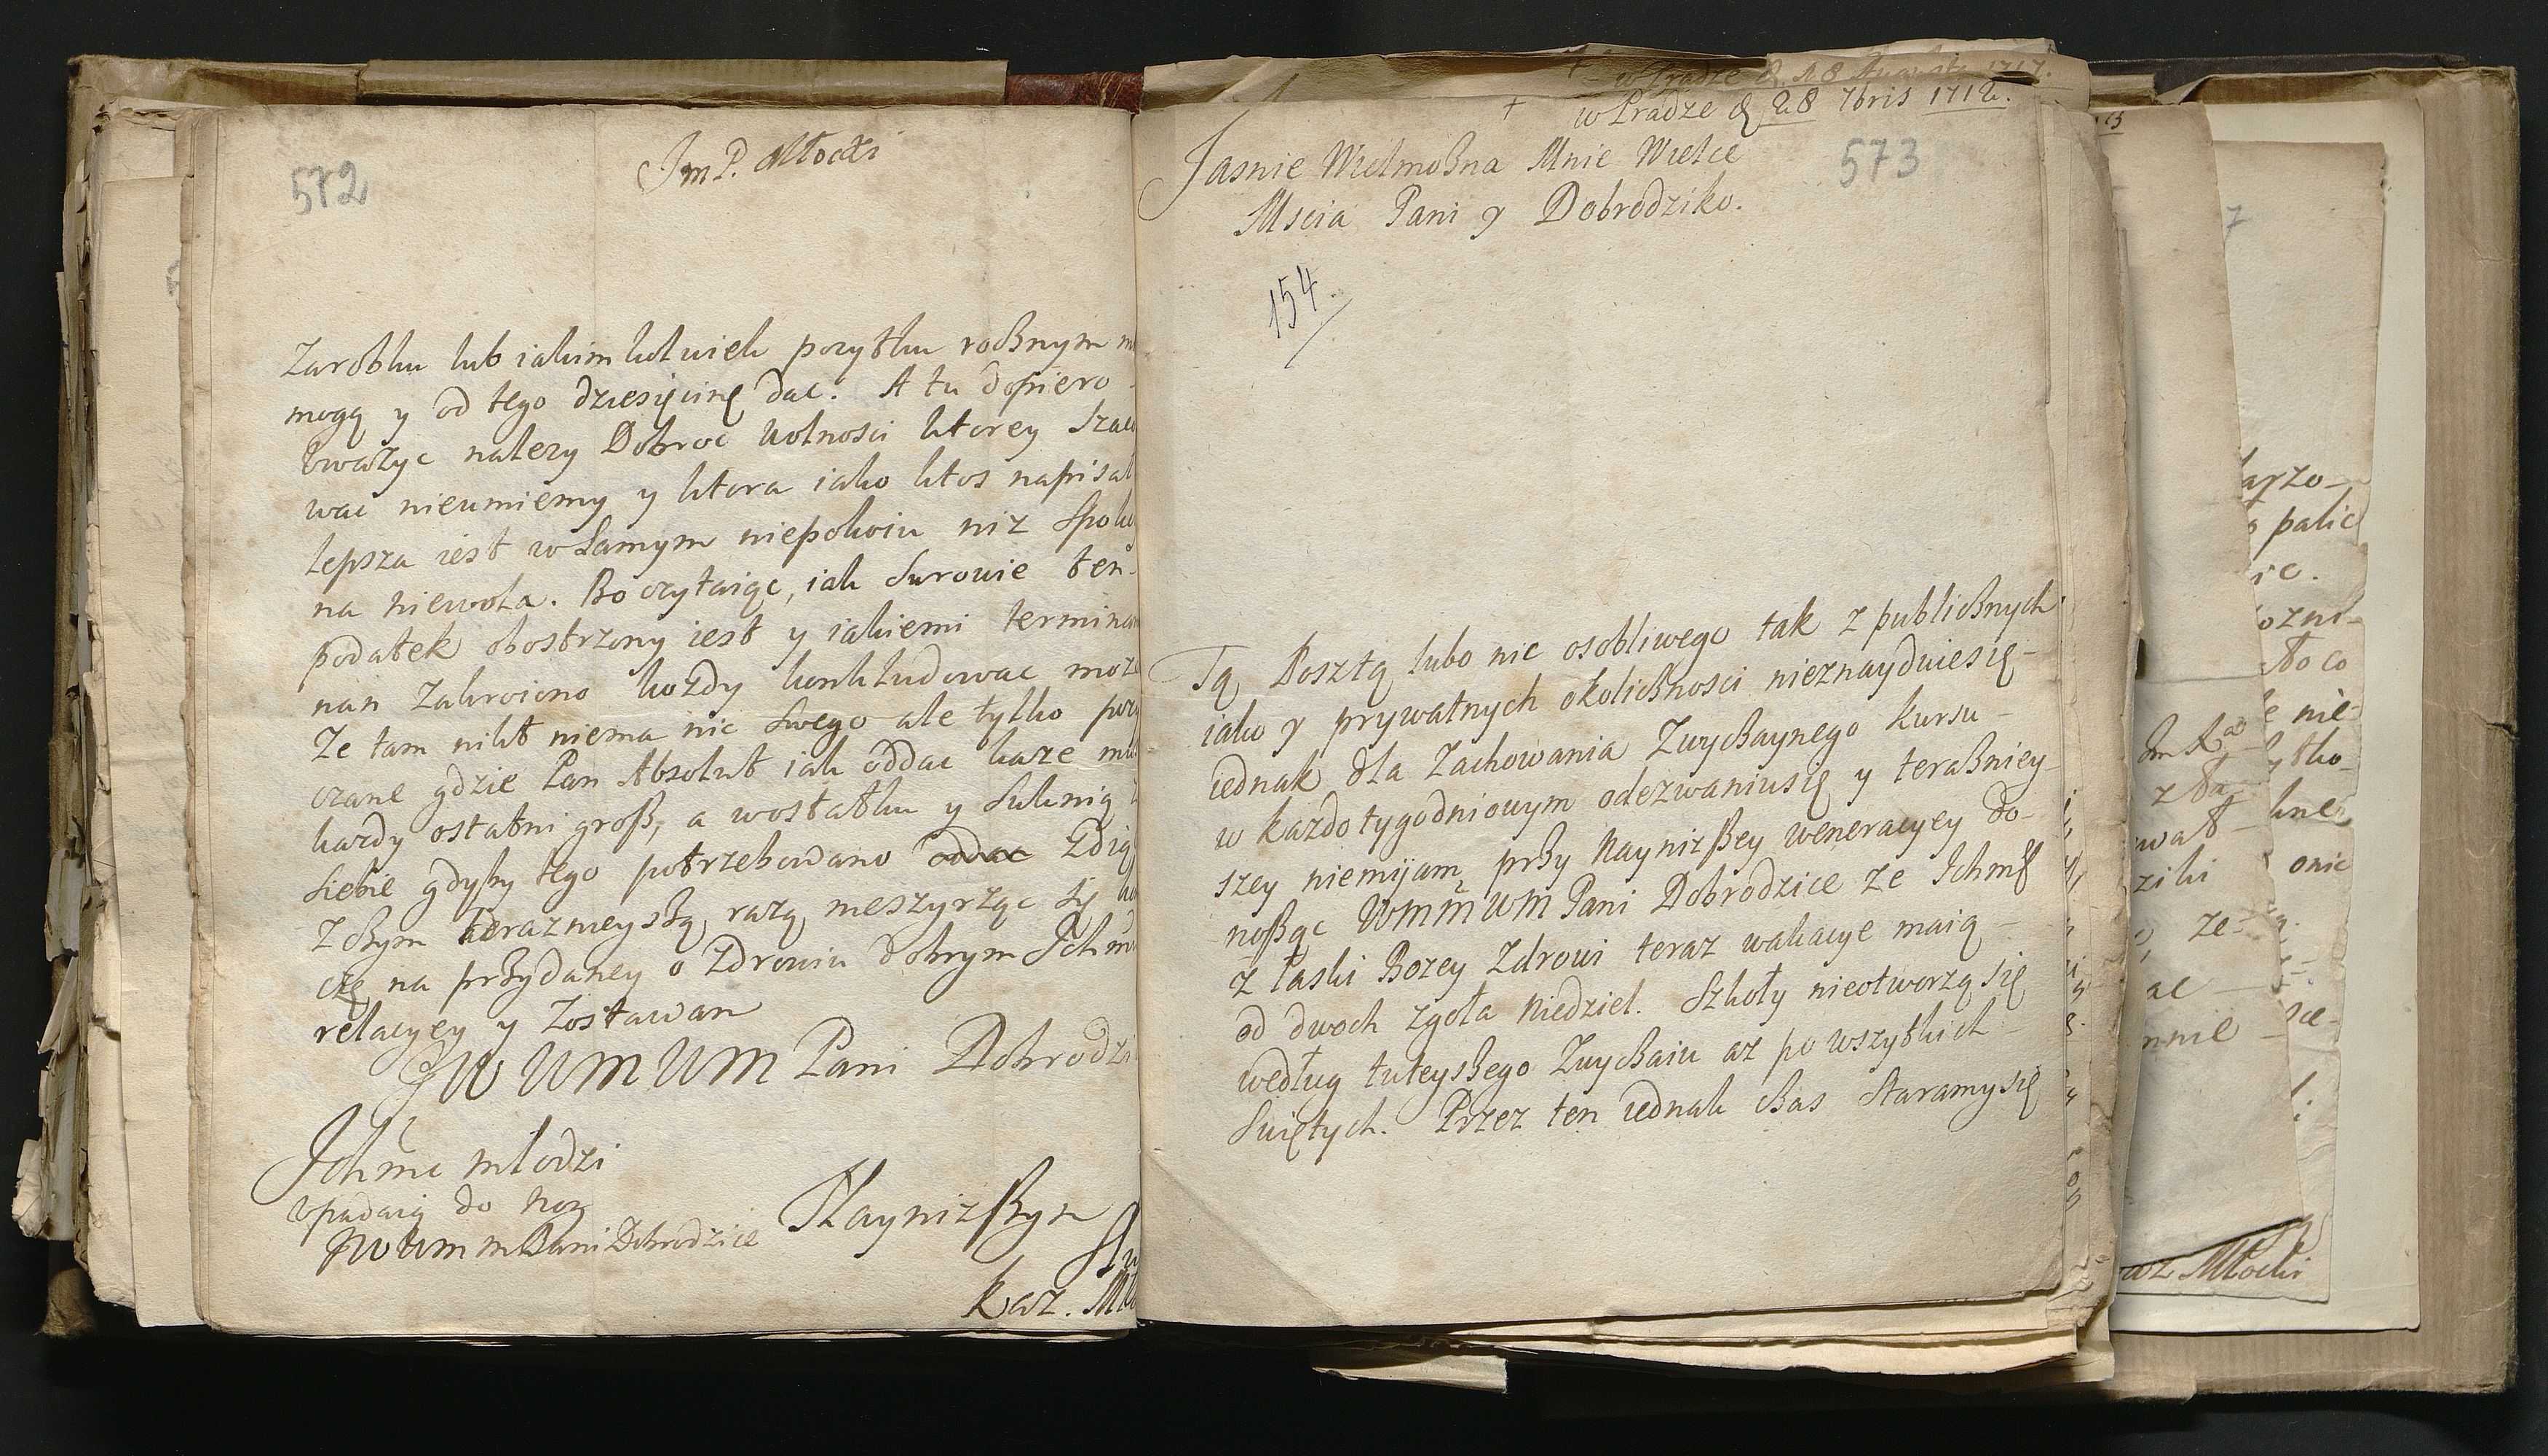 572
Jm P. Młocki
Zarobku lub iakimkolwiek pozytku rocznym
mogą y od tego dziesięcinę dac. A tu dopiero
Uwazyc nalezy Dobroc Wolnosci ktorey Szaco
wac nieumiemy y ktora iako ktos napisał
lepsza iest w Samym niepokoiu niz Spokoy
na niewola. Bo czytaiąc, iak Surowie ten
podatek obostrzony iest y iakiemi termina
nan Zakroiono kozdy konkludowac moze
Ze tam nikt niema nic Swego ale tylko pozy
czane gdzie Pan Absolut iak oddac kaze mu
kazdy ostatni groß, a wostatku y Suknią
Siebie gdyby tego potrzebowano Zdią
Z czym teraznieyszą razą nieszyrząc
czę na przydaney o Zdrowiu dobrym Jchm
relacyey y Zostawam
JW WM WM Pani Dobrodzi
Jchmc młodzi
Upadaią do nog
JW Wm m Pani Dobrodzice
Naynizßym
Słu
Kaz. Mło
w Pradze d. 18 Augusti 1712.
+ w Pradze d 28 7bris 1712.
573
Jasnie Wielmożna Mnie Wielce
Mscia Pani y Dobrodziko.
154.
Tą Posztą lubo nic osobliwego tak z publicznych
iako y prywatnych okolicznosci nieznayduiesię
iednak dla Zachowania Zwyczaynego kursu
w kazdotygodniowym odezwaniusię y terazniey
szey niemijam przy Nayniżßey weneracyey do-
noßąc WmmWM Pani Dobrodzice ze Jchmć
z łaski Bozey Zdrowi teraz wakacye maią
od dwoch zgoła Niedziel. Szkoły nieotworzą się
według tuteyszego Zwyczaiu az po wszytkich
Swiętych. Przez ten iednak czas Staramysię
arzo-
palic
ic.
ozni-
to co
nie-
ytko-
onic
ziki
ze-
ac
mnie
Młocki